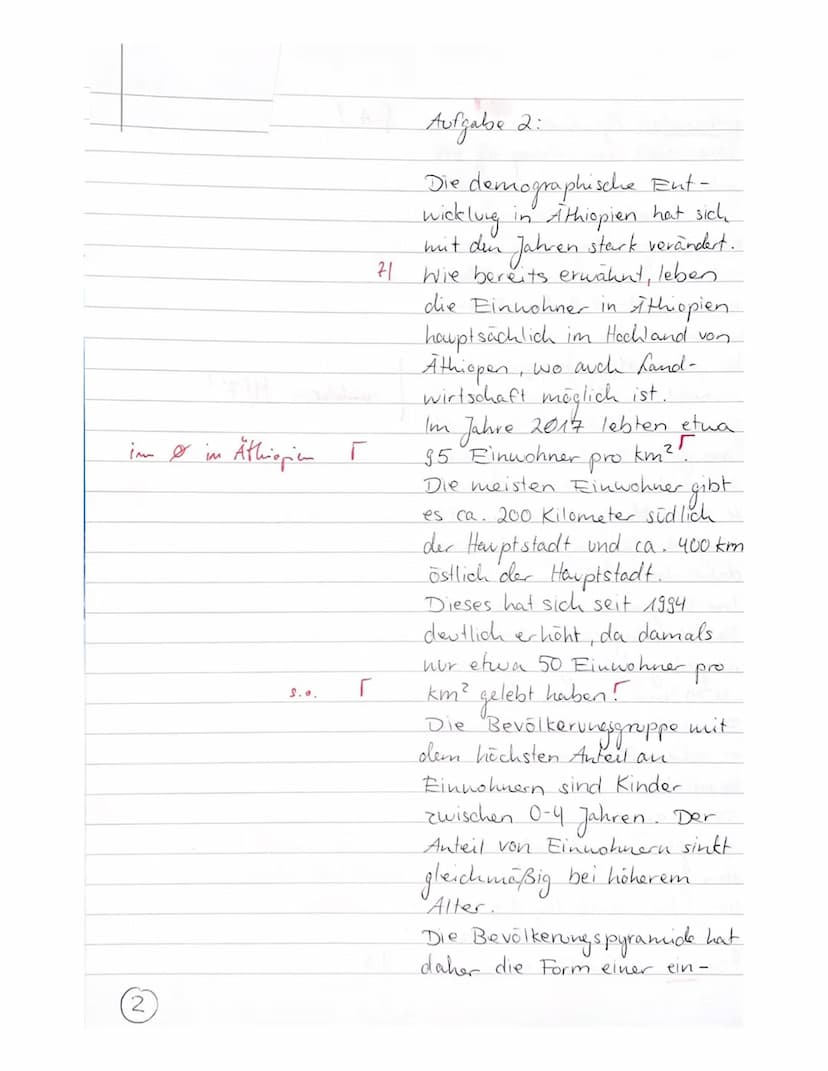 Aufgabe 2:
Die demographische Ent-
wicklung in Äthiopien hat sich
mit den Jahren stark verändert.
Z| Wie bereits erwähnt, leben
die Einwohner in Äthiopien
hauptsächlich im Hochland von
Äthiopen, wo auch Land-
wirtschaft möglich ist.
Im Jahre 2017 lebten etwa
im Ø in Äthiopien Γ 95 Einwohner pro km² Γ.
Die meisten Einwohner gibt
es ca. 200 Kilometer südlich
der Hauptstadt und ca. 400 km
östlich der Hauptstadt.
Dieses hat sich seit 1994
deutlich erhöht, da damals
nur etwa 50 Einwohner pro
s.o. Γ km² gelebt haben. Γ
Die Bevölkerungsgruppe mit
dem höchsten Anteil an
Einwohnern sind Kinder
zwischen 0-4 Jahren. Der
Anteil von Einwohnern sinkt
gleichmäßig bei höherem
Alter.
Die Bevölkerungspyramide hat
daher die Form einer ein-
2